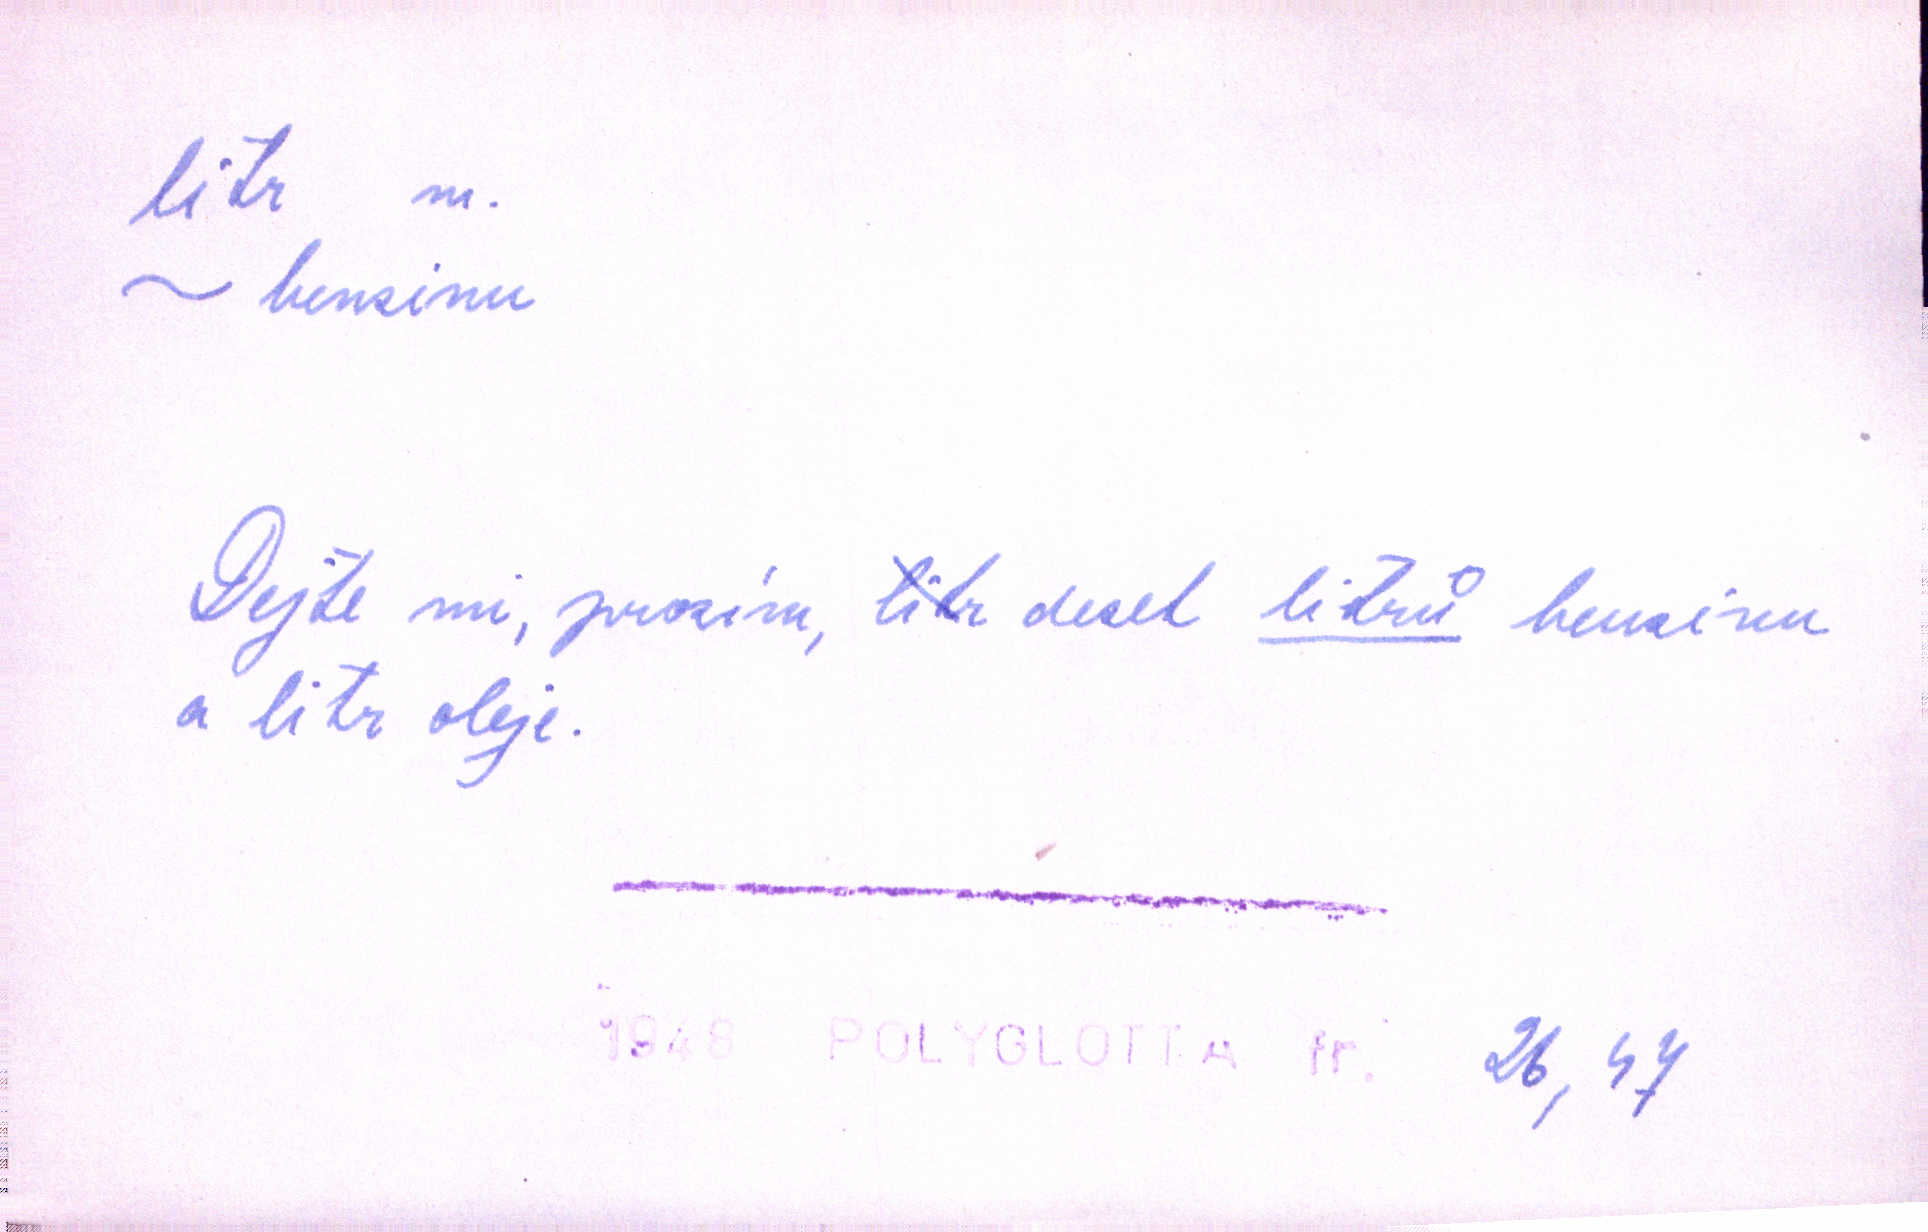 litr m.
~ bensinu
Dejte mi, prosím, litr deset litrů bensinu
a litr oleje.
1948 POLYGLOTTA fr. 26, 47